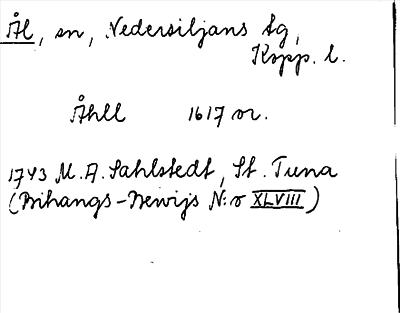 Ål, sn, Nedersiljans tg,
Kopp. l.
Åhll 1617 or.
1743 M. A. Sahlstedt, St. Tuna
(Bihangs-Bewijs N:o XLVIII)